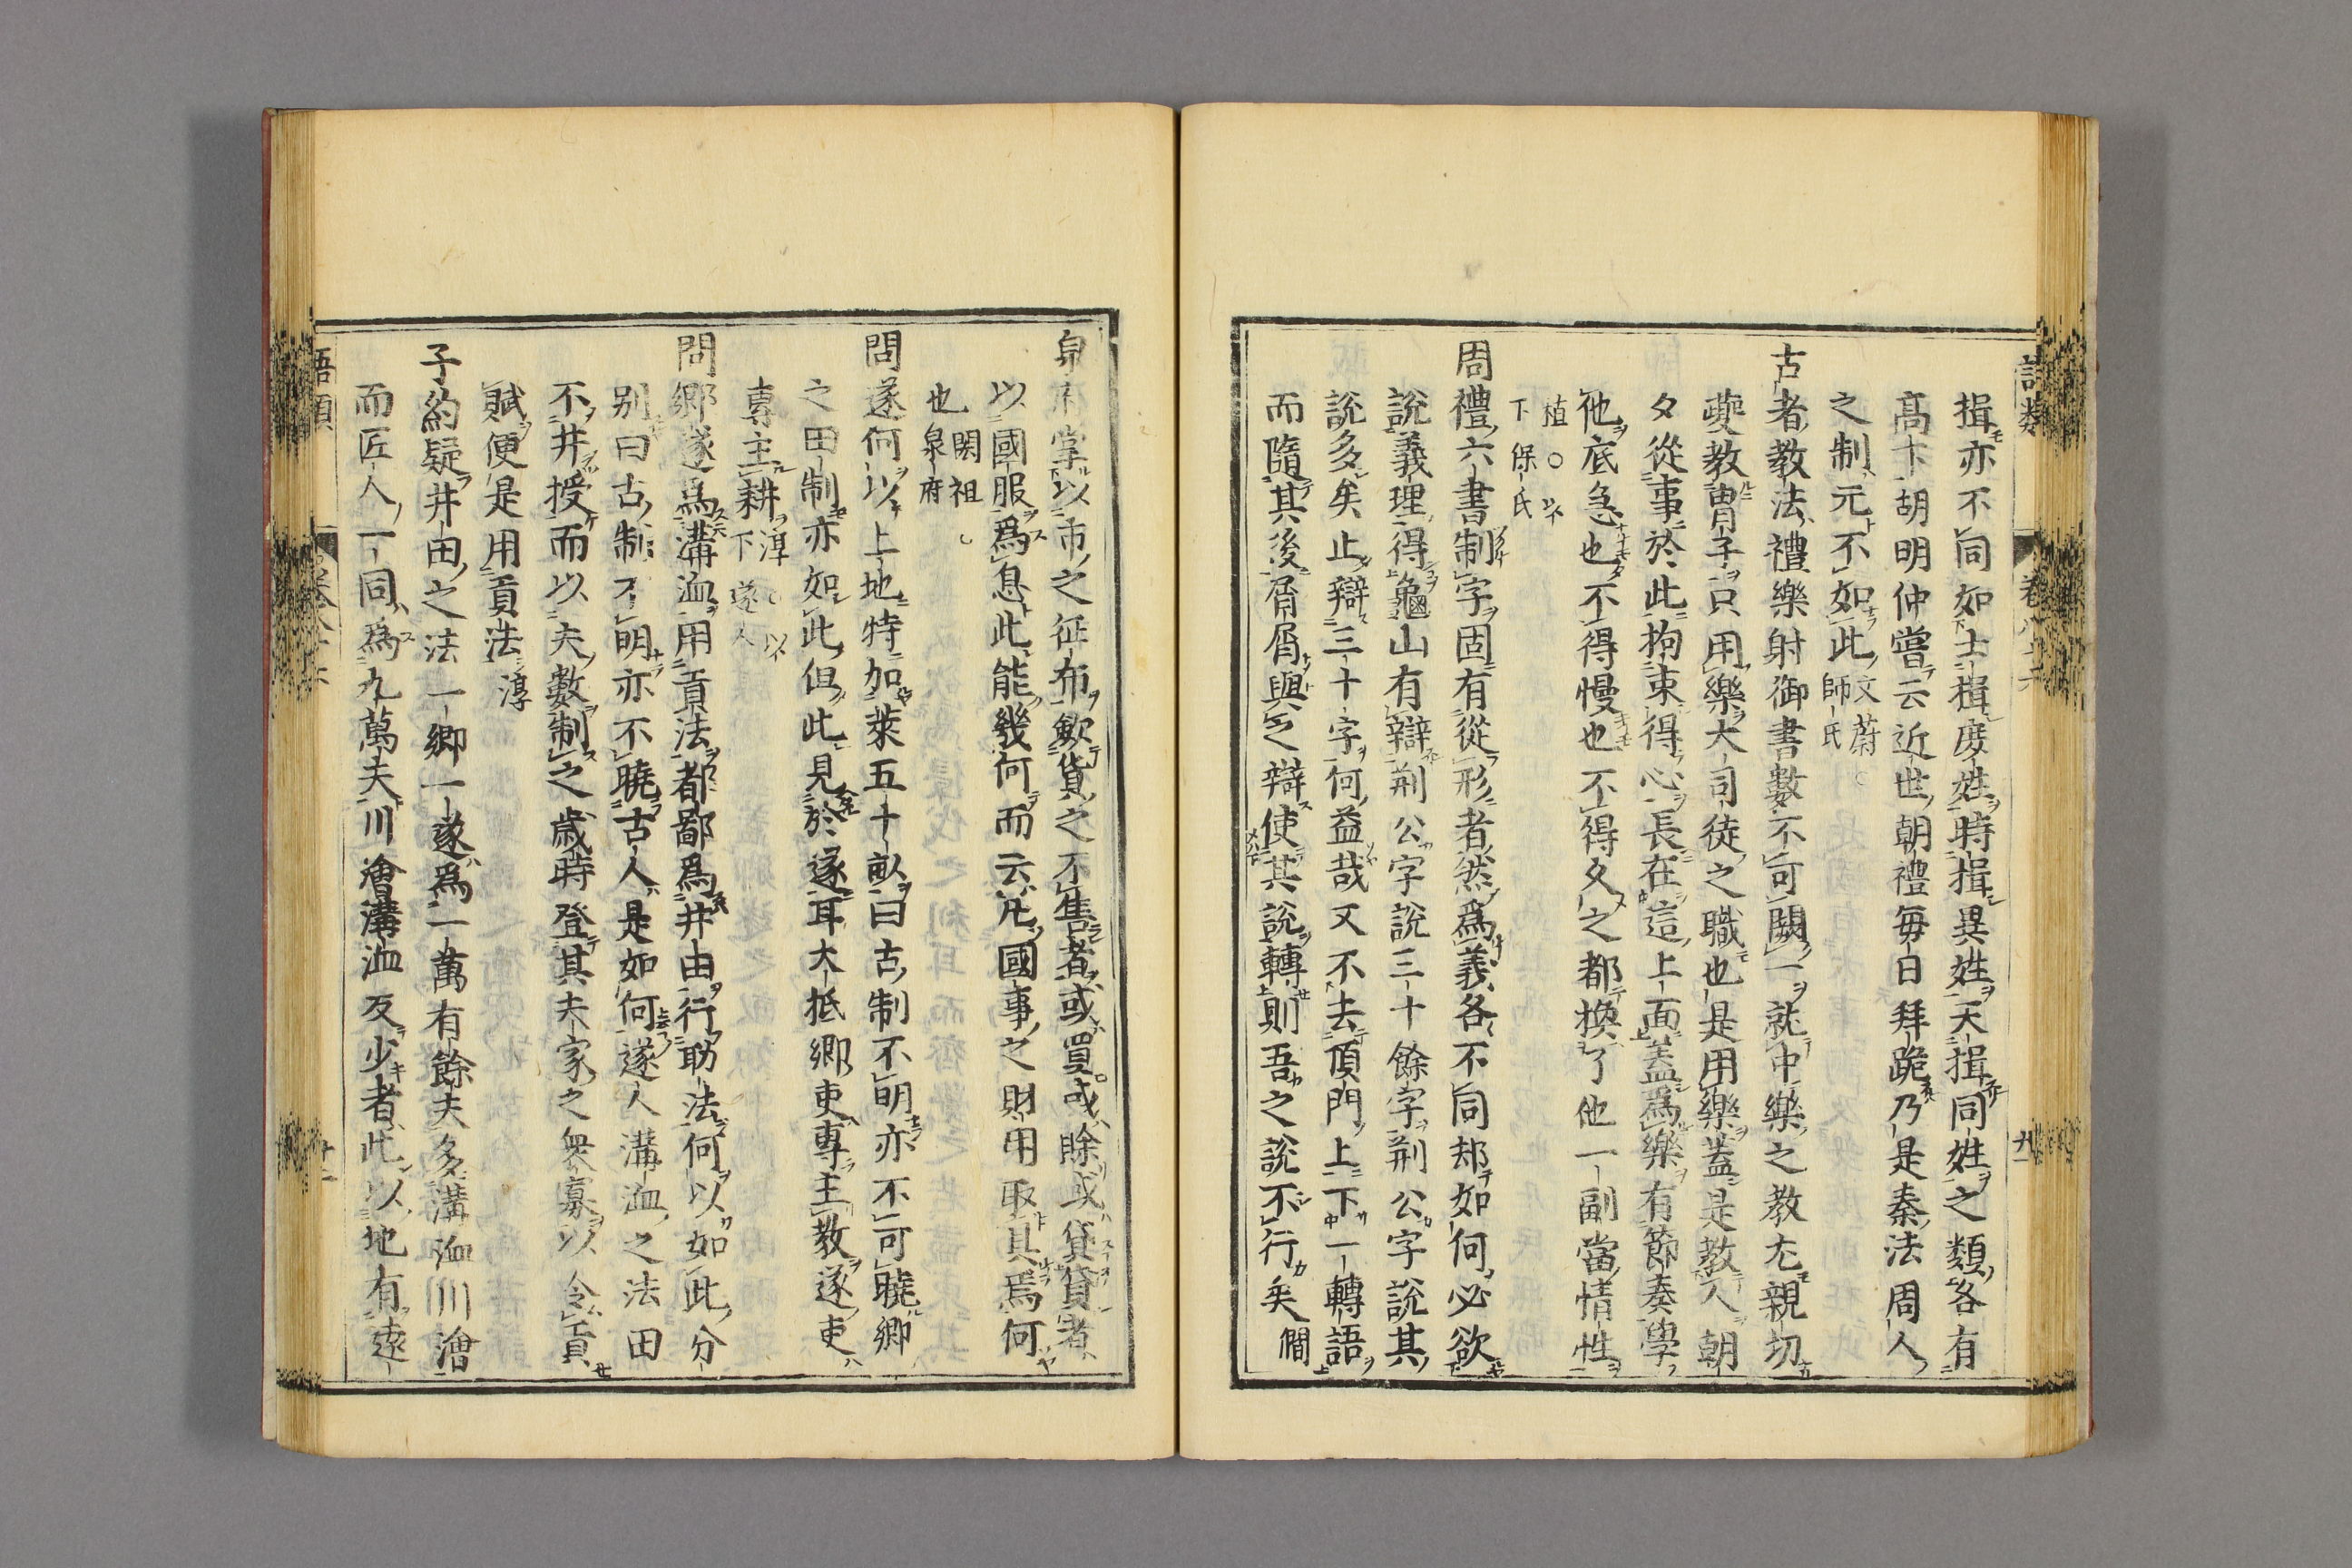 揖亦不同如士揖庶姓時揖異姓天揖同姓之類各有
高下胡明仲嘗云近世朝禮毎日拜跪乃是秦法周人
之制元不如此文蔚○師氏
古者教法禮樂射御書數不可闕一就中樂之教尤親切
夔教冑子只用樂大司徒之職也是用樂蓋是教人朝
夕從事於此拘束得心長在這上面蓋為樂有節奏學
他底急也不得慢也不得久之都換了他一副當情性
植○以下保氏
周禮六書制字固有從形者然為義各不同却如何必欲
說義理得龜山有辯荊公字說三十餘字荊公字說其
說多矣止辯三十字何益哉又不去頂門上下一轉語
而隨其後屑屑與之辯使其說轉則吾之說不行矣僩
泉府掌以市之征布斂貨之不售者或買或賒或貸貸者
以國服為息此能幾何而云凡國事之財用取具焉何
也閎祖○泉府
問遂何以上地特加萊五十畝曰古制不明亦不可曉鄉
之田制亦如此但此見於遂耳大抵鄉吏專主教遂吏
專主耕淳○以下遂人
問鄉遂為溝洫用貢法都鄙為井田行助法何以如此分
別曰古制不明亦不曉古人是如何遂人溝洫之法田
不井授而以夫數制之歲時登其夫家之衆寡以令貢
賦便是用貢法淳
子約疑井田之法一鄉一遂為一萬有餘夫多溝洫川澮
而匠人一同為九萬夫川澮溝洫反少者此以地有遠
語類
卷八十六